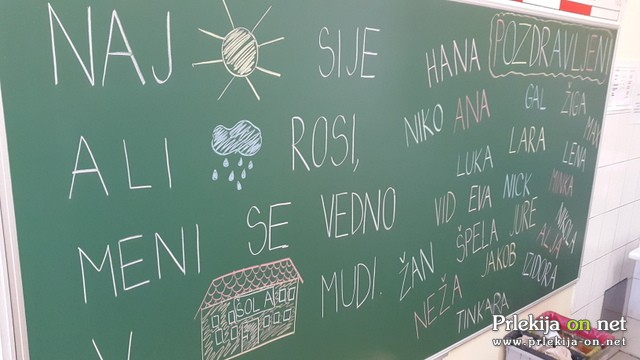 NAJ SIJE
ALI ROSI,
MENI SE VEDNO
MUDI.
V
ŠOLA
POZDRAVLJENI
HANA
NIKO ANA GAL ŽIGA
MAX
LUKA LARA LENA
VID EVA NICK MINKA
ŽAN ŠPELA JURE NIKOLA
ALJA
NEŽA JAKOB IZIDORA
TINKARA
Prlekija on net
www.prlekija-on.net